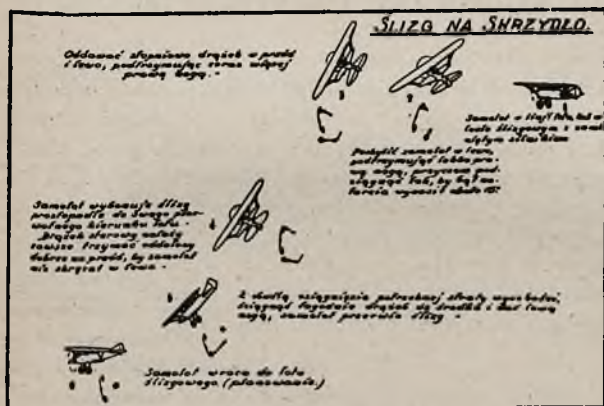 ŚLIZG NA SKRZYDŁO.
Oddawać stopniowo drążek w przód
i lewo, podtrzymując coraz więcej
prawą nogą. -
Samolot w linji lotu lub w
locie ślizgowym z zamk-
niętym silnikiem
Pochylić samolot w lewo,
podtrzymując lekko pra-
wą nogą, przyczem pod-
ciągając tak, by kąt na-
tarcia wynosił około 15°
Samolot wykonuje ślizg
prostopadle do swego pier-
wotnego kierunku lotu. -
Drążek sterowy należy
zawsze trzymać oddalony
dobrze na przód, by samolot
nie skręcał w lewo. -
Z chwilą osiągnięcia potrzebnej straty wysokości,
ściągnąć łagodnie drążek do środka i dać lewą
nogą, samolot przerwie ślizg -
Samolot wraca do lotu
ślizgowego (planowanie.)